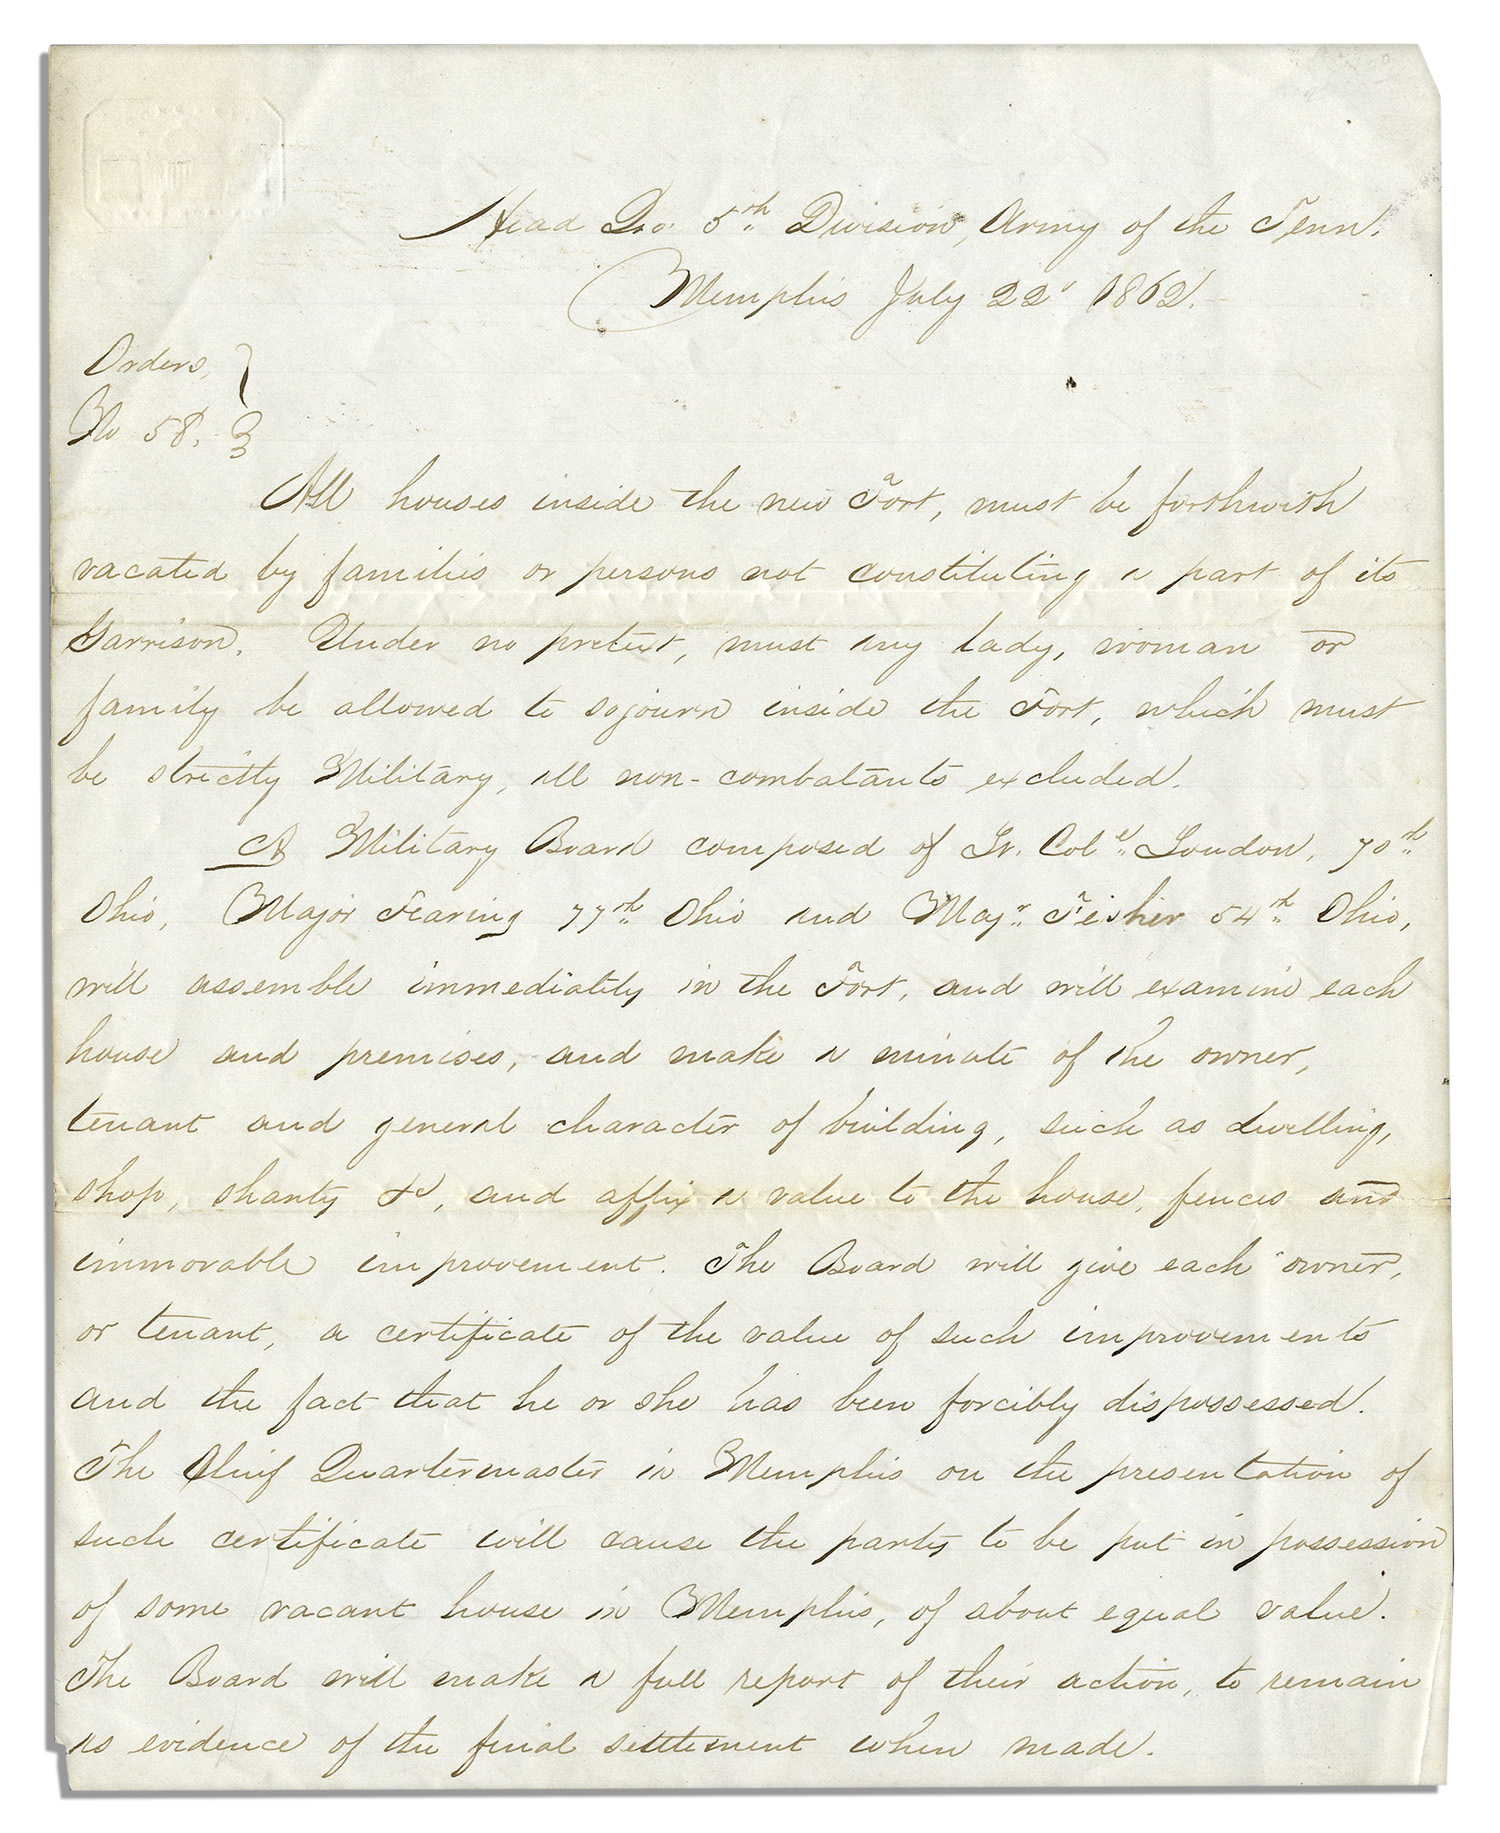 Head Qrs. 5th Division, Army of the Tenn.
Memphis July 22' 1862.
Orders,
No 58.
All houses inside the new Fort, must be forthwith
vacated by families or persons not constituting a part of its
Garrison. Under no pretext, must any lady, woman or
family be allowed to sojourn inside the Fort, which must
be strictly Military, all non-combatants excluded.
A Military Board composed of Lt. Col. Loudon, 70th
Ohio, Major Fearing 77th Ohio and Majr. Feisher 54th Ohio,
will assemble immediately in the Fort, and will examine each
house and premises, and make a minute of the owner,
tenant and general character of building, such as dwelling,
shop, shanty &c, and affix a value to the house, fences and
immovable improvement. The Board will give each owner,
or tenant, a certificate of the value of such improvements
and the fact that he or she has been forcibly dispossessed.
The Chief Quartermaster in Memphis on the presentation of
such certificate will cause the party to be put in possession
of some vacant house in Memphis, of about equal value.
The Board will make a full report of their action, to remain
as evidence of the final settlement when made.